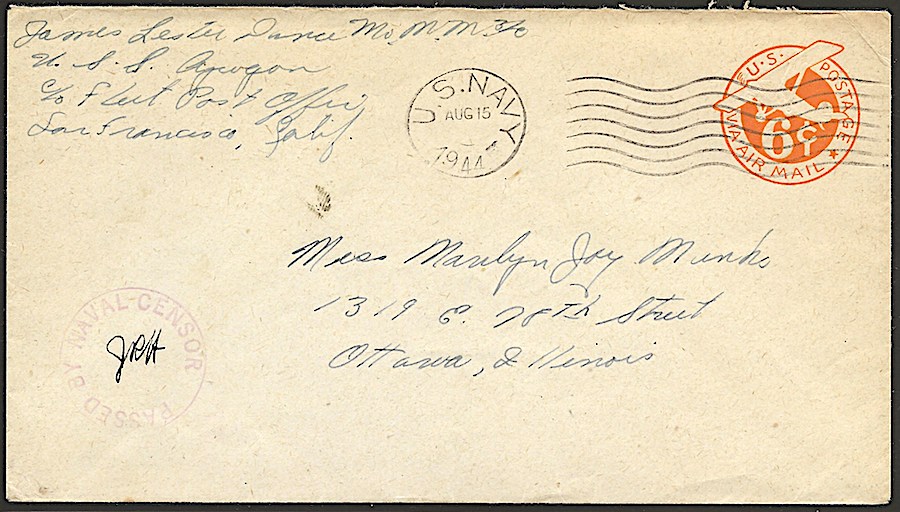 James Lester Dance Mo.M.M. 3/c
U. S. S. Apogon
c/o Fleet Post Office
San Francisco, Calif.
U.S. NAVY
AUG 15
1944
U.S. POSTAGE
6¢
VIA AIR MAIL
Miss Marilyn Joy Munks
1319 E. 78th Street
Ottawa, Illinois
PASSED BY NAVAL CENSOR
JRH